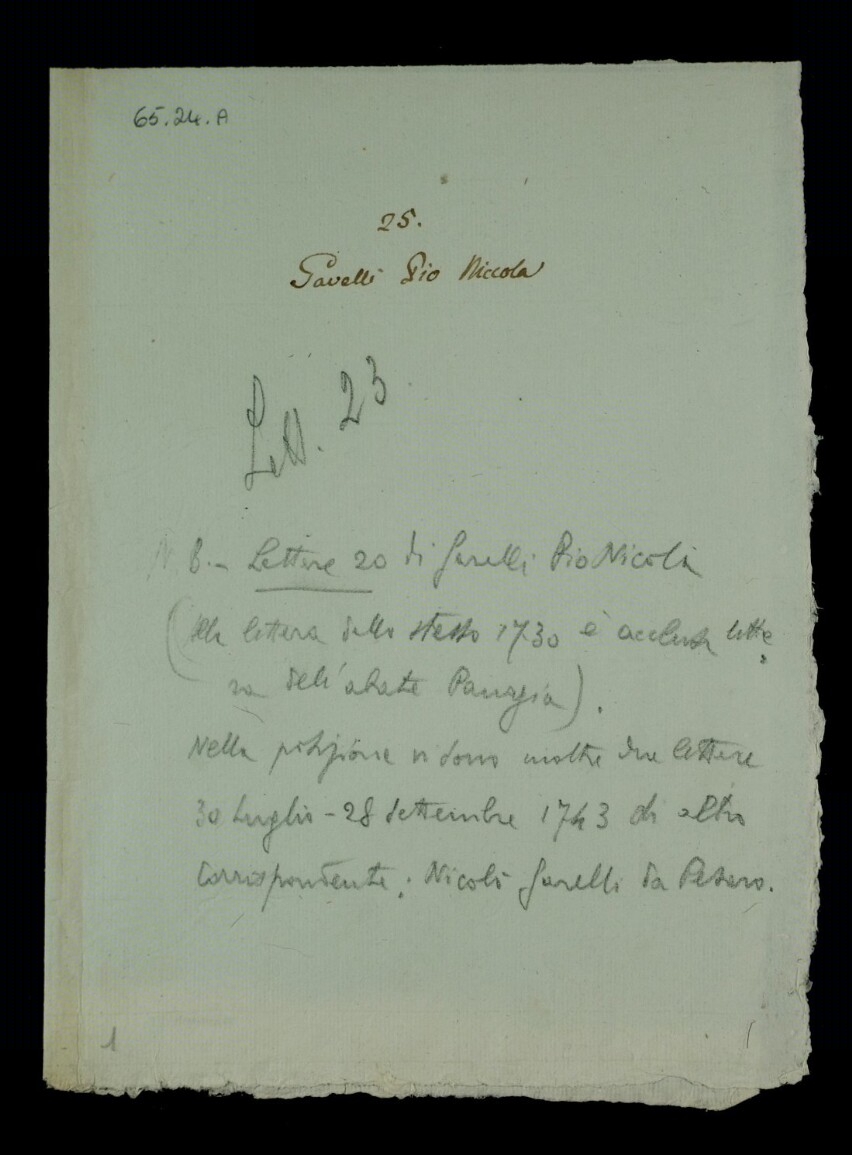 65.24.A
25.
Gavelli Pio Niccola
Lett. 23
N B. - Lettere 20 di Gavelli Pio Nicola
(Alla lettera dello stesso 1730 è acclusa lette
ra dell'abate Panagia).
Nella posizione vi sono inoltre due lettere
30 Luglio - 28 settembre 1743 di altro
corrispondente: Nicolò Gavelli da Pesaro.
1